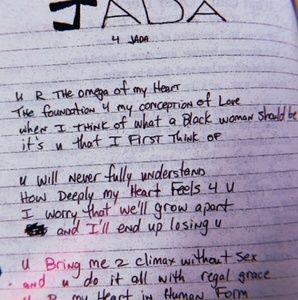 JADA
4 JADA
U R The omega of my Heart
The foundation 4 my conception of Love
when I THINK of what a Black woman should be
it's u that I FIRST Think OF
u will never fully understand
How Deeply my Heart Feels 4 U
I worry that we'll grow apart
and I'll end up losing u
u Bring me 2 climax without sex
and u do it all with regal grace
U R my Heart in Human Form